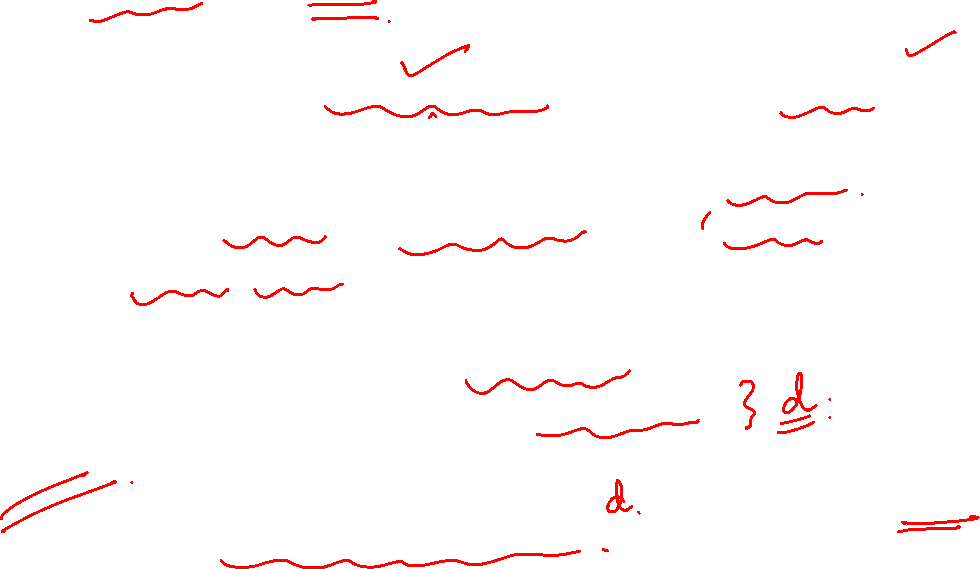 } d:
d.